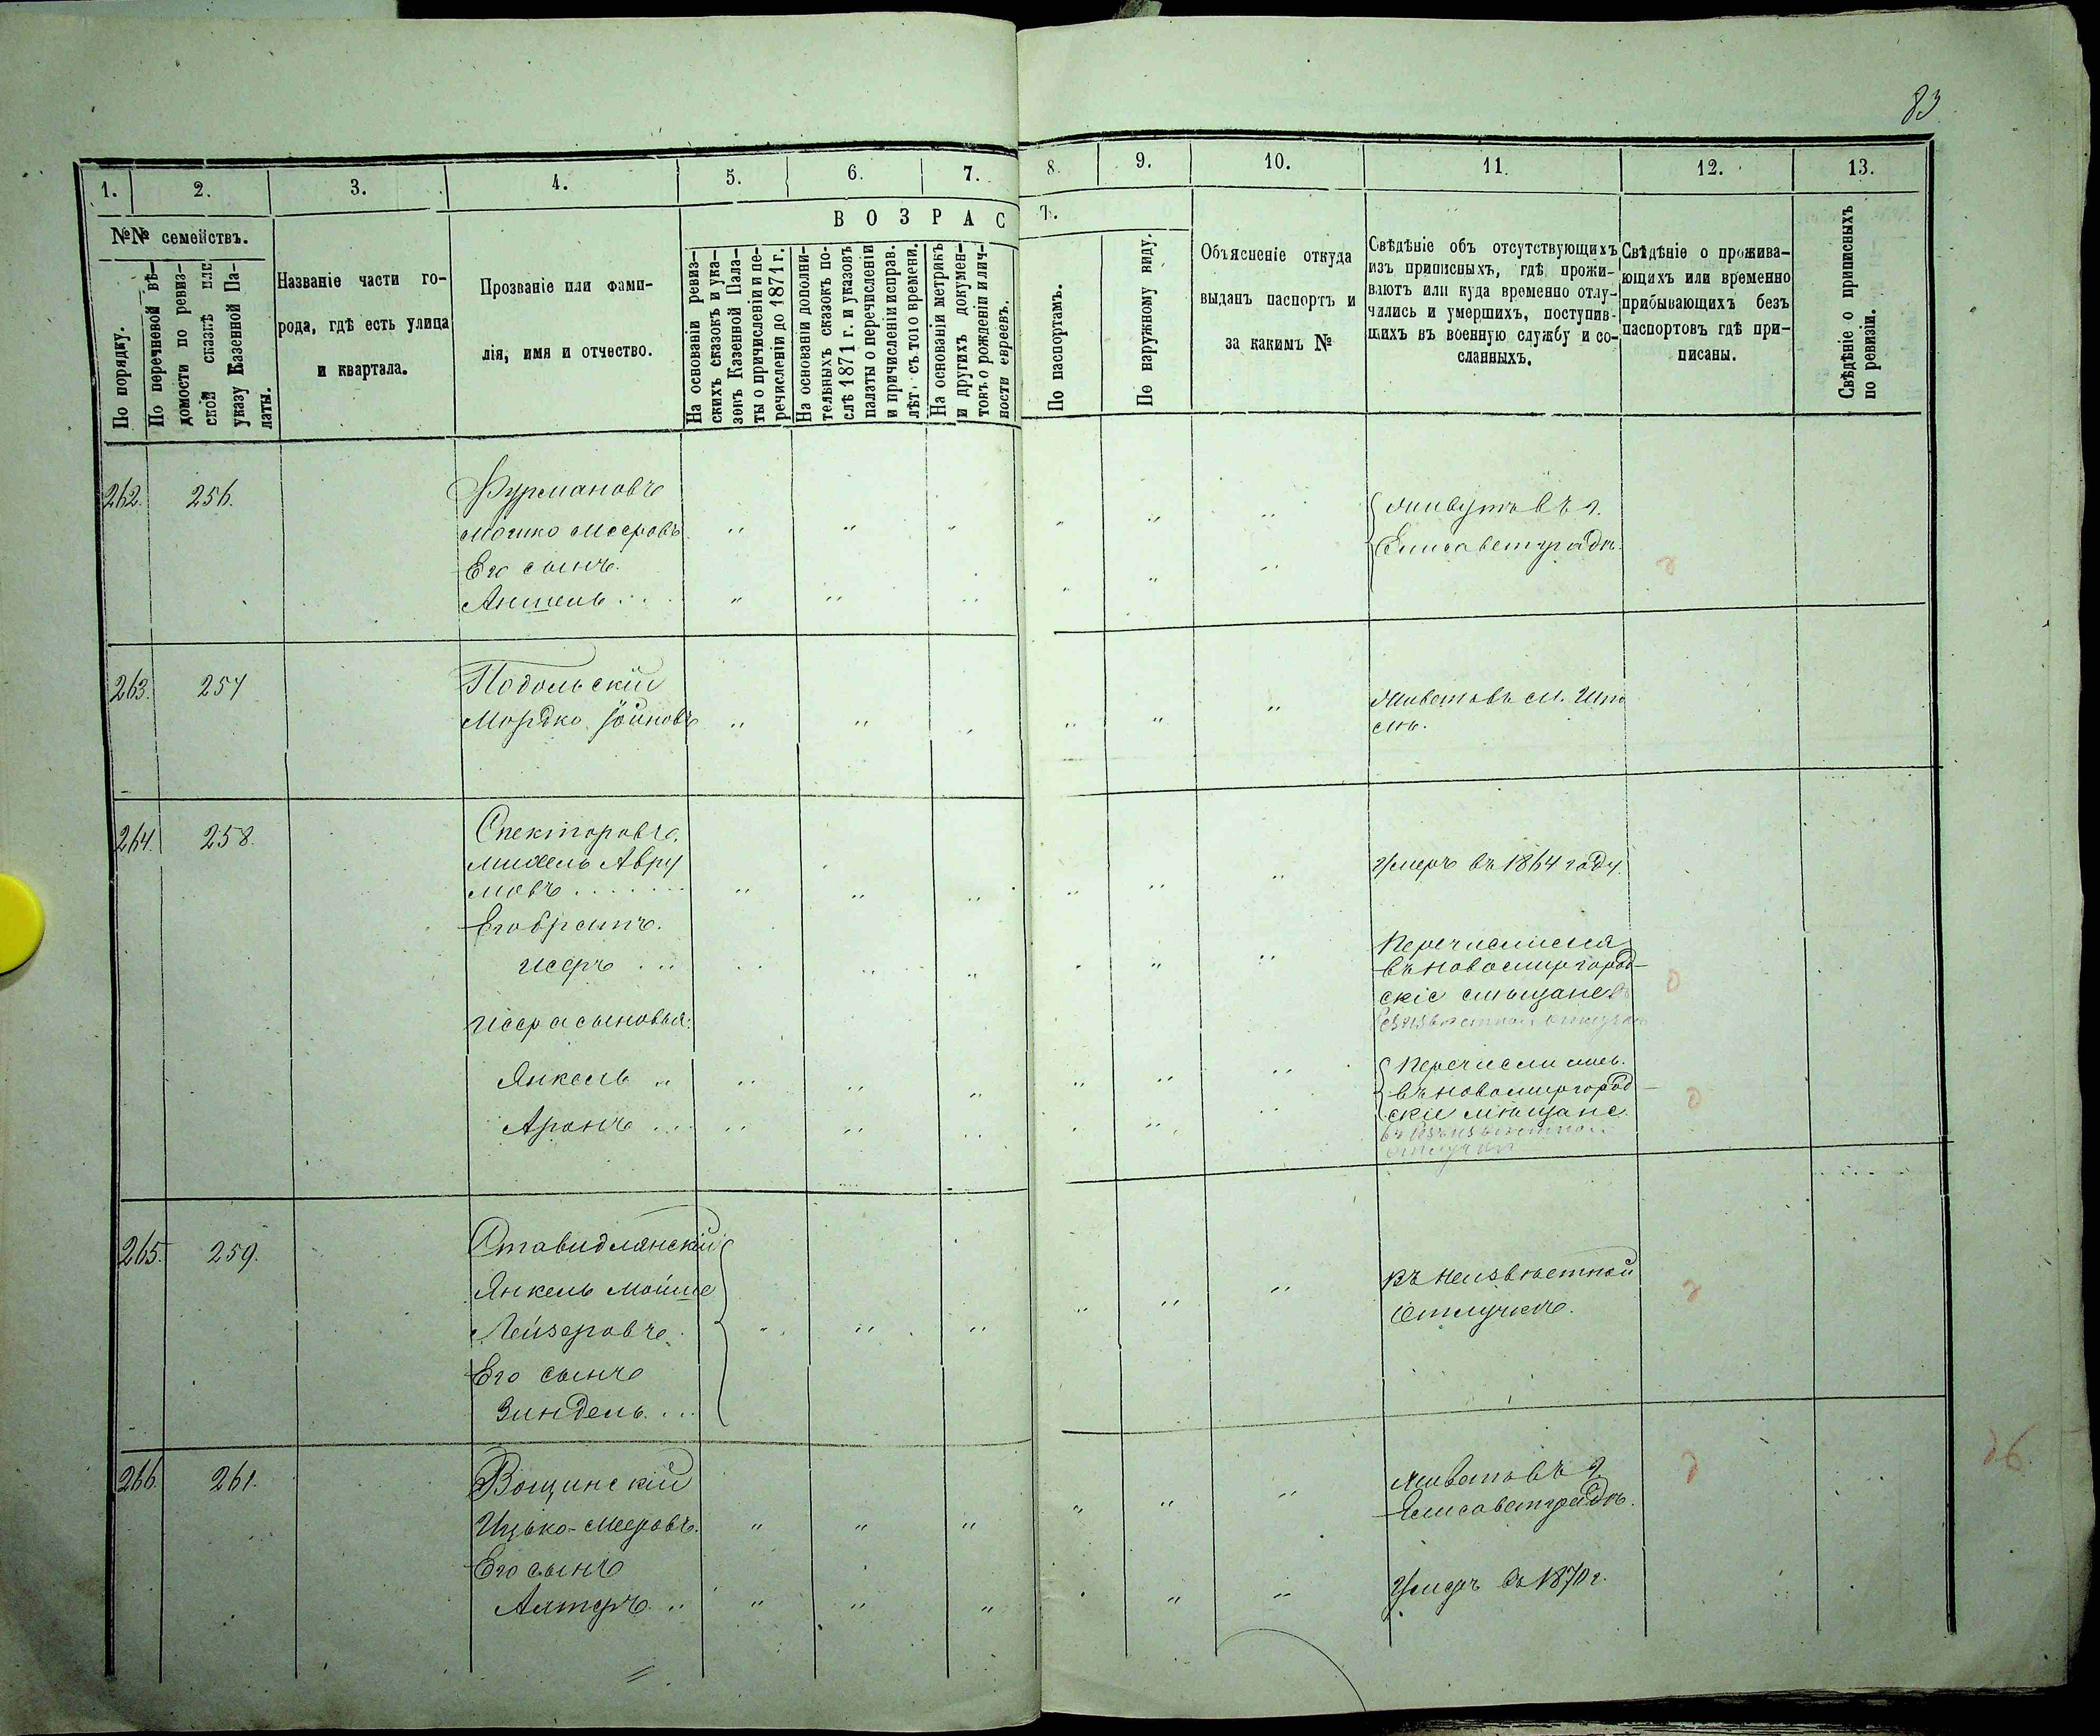 83
1.
2.
3.
4.
5.
6.
7.
8.
9.
10.
11.
12.
13.
№№ семействъ.
По порядку.
По перечневой вѣ-
домости по ревиз-
ской сказкѣ или
указу Казенной Па-
латы.
Названіе части го-
рода, гдѣ есть улица
и квартала.
Прозваніе или фами-
лія, имя и отчество.
ВОЗРАС
Тъ.
На основаніи ревиз-
скихъ сказокъ и ука-
зовъ Казенной Пала-
ты о причисленіи и пе-
речисленіи до 1871 г.
На основаніи дополни-
тельныхъ сказокъ по-
слѣ 1871 г. и указовъ
палаты о перечисленіи
и причисленіи исправ.
лѣт. съ того времени.
На основаніи метрикъ
и другихъ докумен-
товъ о рожденіи и лич-
ности евреевъ.
По паспортамъ.
По наружному виду.
Объясненіе откуда
выданъ паспортъ и
за какимъ №
Свѣдѣніе объ отсутствующихъ
изъ приписныхъ, гдѣ прожи-
ваютъ или куда временно отлу-
чились и умершихъ, поступив-
шихъ въ военную службу и со-
сланныхъ.
Свѣдѣніе о прожива-
ющихъ или временно
прибывающихъ безъ
паспортовъ гдѣ при-
писаны.
Свѣдѣніе о приписныхъ
по ревизіи.
262. 256. Фурмановъ
Мошко Мееровъ " " " " " " живутъ въ г.
Его сынъ Елисаветградѣ.
Аншель " " " " " "
263. 257 Подольскій
Мордко Іойновъ " " " " " " Живетъ въ м.
264. 258. Спекторовъ
Михель Авру
мовъ " " " " " " Умеръ въ 1864 году.
Его братъ.
Исеръ " " " " " " Перечислился
въ новомиргород-
скіе мѣщане
Исера сыновья:
Янкель " " " " " " Перечислились
въ новомиргород-
Аронъ " " " " " " скіе мѣщане
въ безъизвѣстной
отлучкѣ
265. 259. Ставидлянскій
Янкель Мойше " " " Въ неизвѣстной
Лейзеровъ " " " отлучкѣ.
Его сынъ
Зиндель
266. 261. Вощинскій
Ицько-Мееровъ. " " " " " " Живетъ въ г.
Елисаветградѣ.
Его сынъ
Алтеръ " " " " " " Умеръ въ 1870 г.